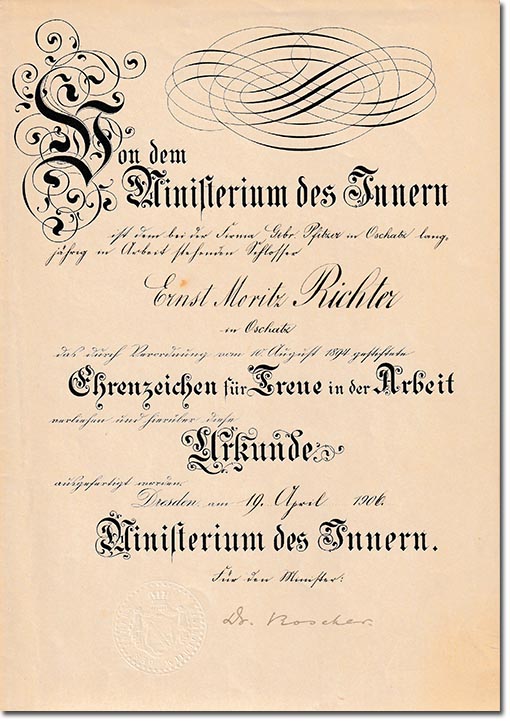 Von dem
Ministerium des Innern
ist dem bei der Firma Gebr. Pfitzer in Oschatz lang-
jährig in Arbeit stehenden Schlosser
Ernst Moritz Richter
in Oschatz
das durch Verordnung vom 10. August 1894 gestiftete
Ehrenzeichen für Treue in der Arbeit
verliehen und hierüber diese
Urkunde
ausgefertigt worden.
Dresden, am 19. April 1906.
Ministerium des Innern.
Für den Minister:
Dr. Roscher.